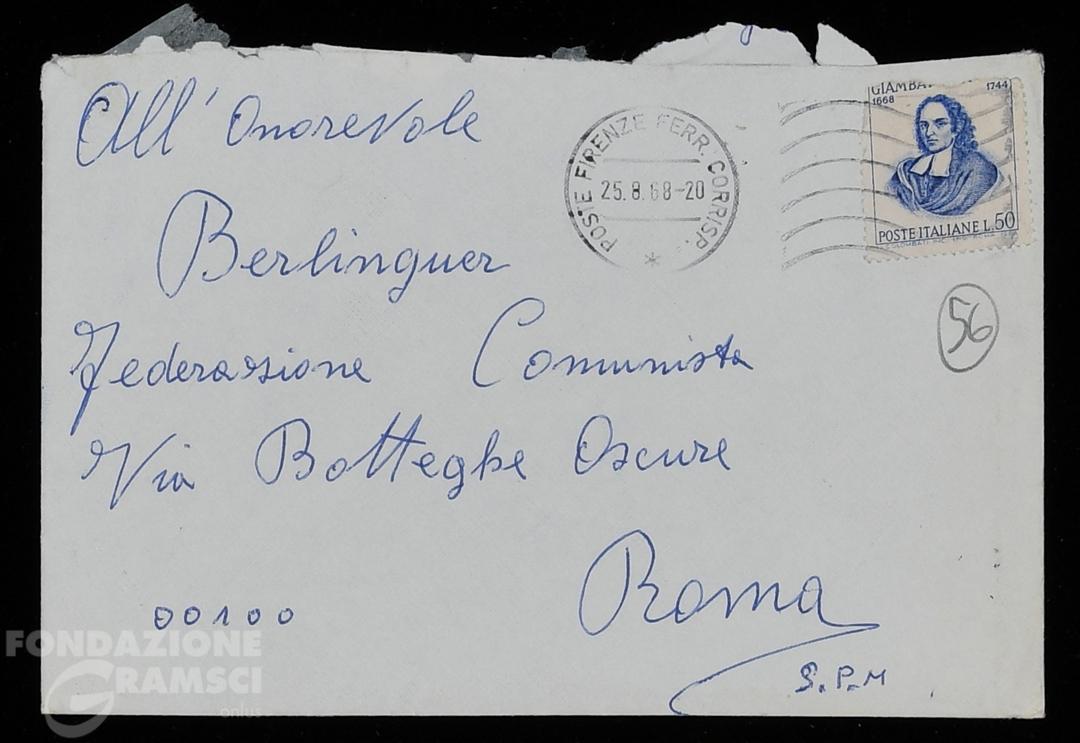 GIAMBA 1744
1668
POSTE ITALIANE L.50
POSTE FIRENZE FERR. CORRISP.
25.8.68-20
*
All' Onorevole
Berlinguer
56
Federazione Comunista
Via Botteghe Oscure
Roma
00100
S.P.M
FONDAZIONE
GRAMSCI
onlus